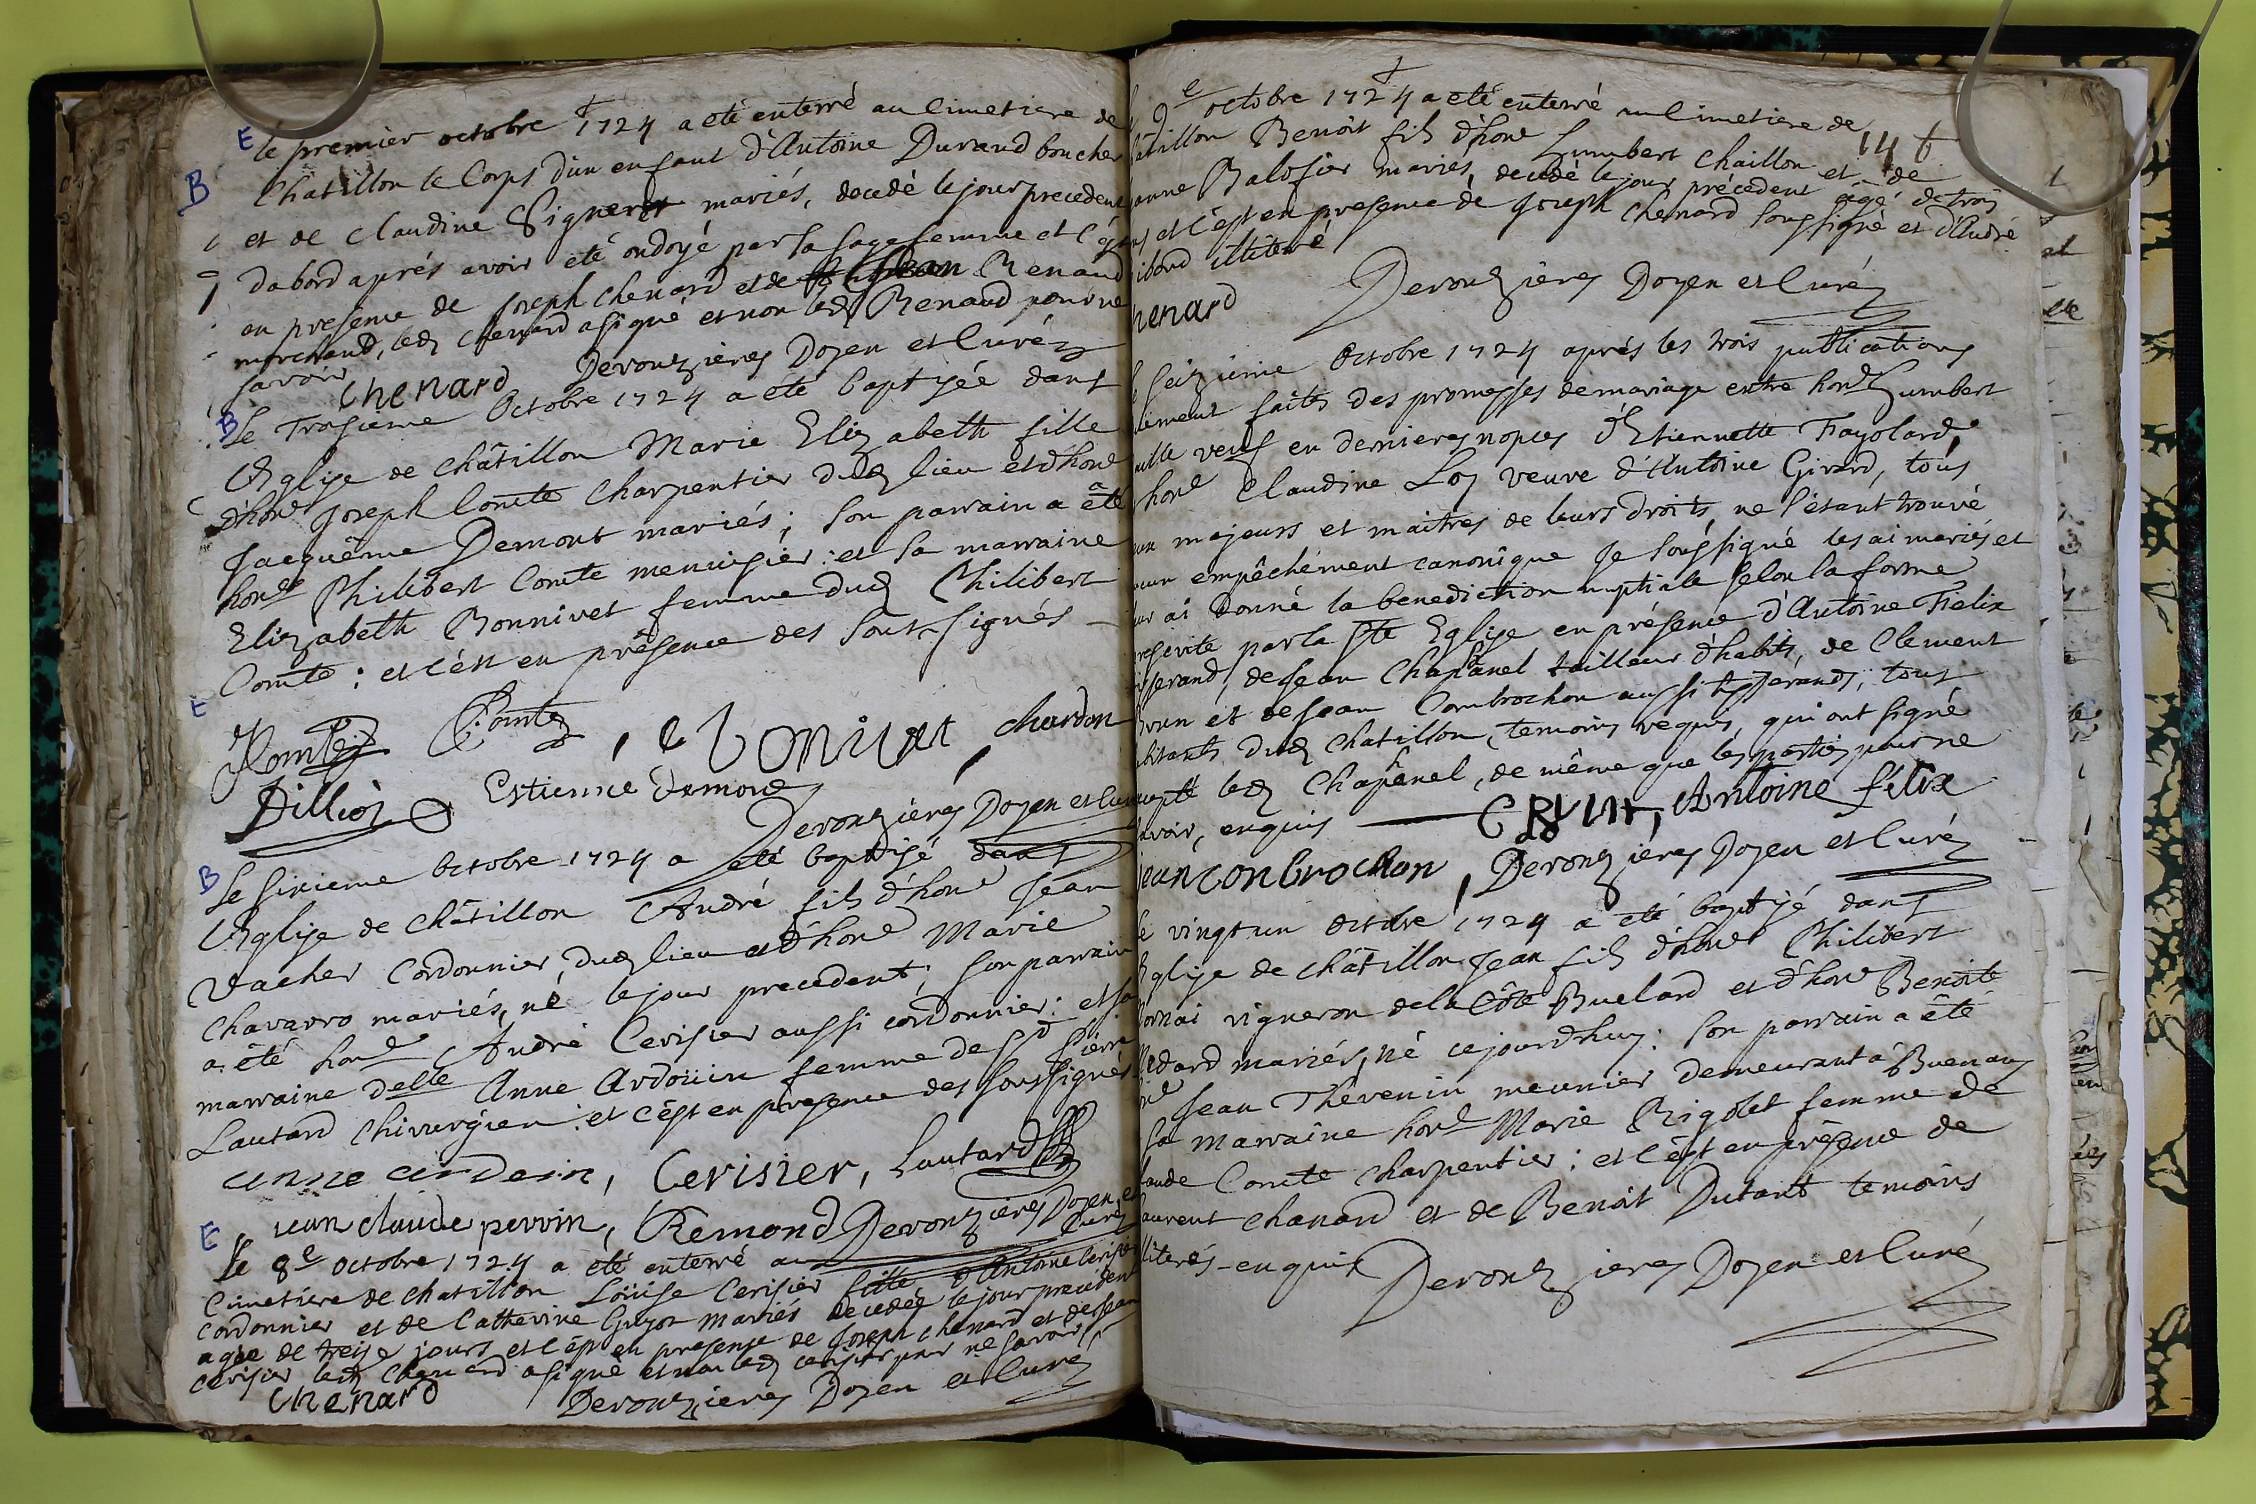 E
Le premier octobre 1724 a eté enterré au Cimetiere de
B
Chatillon le Corps d'un enfant d'Antoine Durand boucher
et de Claudine mariés, decedé le jour precedent
dabord aprés avoir eté ondoyé par la sage femme et c'ést
en presence de Joseph Chenard et de Jean Renaud
marchand, led Chenard a signé et non led Renaud pour ne
savoir
Chenard Derouzieres Doyen et Curé
B
Le Troisieme Octobre 1724 a eté baptizée dans
l'Eglise de Châtillon Marie Elizabeth fille
d'hone Joseph Comte Charpentier dud lieu et d'hone
Jacquême Demont mariés; son parrain a êté
hone Philibert Comte menuisier: et sa marraine
Elizabeth Bonnivet femme dud Philibert
Comte: et c'ést en présence des Sous-signés
E
JComte PComte, e bonivet, chardon
Dillion Estienne Demond
Derouzieres Doyen et Curé
B
Le Sixieme Octobre 1724 a eté baptisé dans
l'Eglise de Châtillon André fils d'hone Jean
Vacher Cordonnier dud lieu et d'hone Marie
Chavarro mariés, né le jour precedent; son parrain
a êté hone André Cerisier aussi cordonnier: et sa
marraine Delle Anne Ardoüin femme de Sr Pierre
Lautard Chirurgien: et c'ést en presence des soussignés
anne ardoin, Cerisier, Lautard
jean claude perrin, Remond Derouzieres Doyen et
Curé
E
Le 8e Octobre 1724 a eté enterré au
Cimetiere de Chatillon Loüise Cerisier fille d'Antoine Cerisier
Cordonnier et de Catherine Guyot mariés decedée le jour precedent
agée de treise jours et c'ést en presence de Joseph Chenard et de Jean
Cerisier led Chenard a signé et non led Cerisier pour ne savoir
Chenard
Derouzieres Doyen et Curé
9e octobre 1724 a eté enterré au Cimetiere de
14 t
atillon Benoît fils d'hone humbert Chaillon et de
anne Balosier mariés, decedé le jour précedent agé de trois
et c'ést en presence de Joseph Chenard soussigné et d'André
ibord illiteré
henard
Derouzieres Doyen et Curé
Seizieme Octobre 1724 aprés les trois publications
ement faites des promesses de mariage entre hone humbert
veuf en dernieres nopces d'Etiennette Fayolard,
hone Claudine Loy veuve d'Antoine Girard, tous
majeurs et maitres de leurs droits, ne s'étant trouvé
cun empêchement canonique Je soussigné les ai mariés et
ur ai donné la benediction nuptiale selon la forme
rescrite par la Ste Eglise en présence d'Antoine Felix
isserand, de Jean Chapanel tailleur d'habits, de Clement
et de Jean Combrochon aussi tisserands; tous
bitants dud Chatillon, temoins requis, qui ont signé
cepté led Chapanel, de même que les parties pour ne
avoir, enquis Antoine félix
jean conbrochon, Derouzieres Doyen et Curé
e vingt un Octobre 1724 a eté baptisé dans
Eglise de Châtillon Jean fils d'hone Philibert
ornai vigneron de la Côte Buelard et d'hone Benoite
edard mariés, né cejourdhuy: son parrain a êté
Jean Thevenin meunier demeurant á Buenans
sa marraine hone Marie Rigolet femme de
laude Comte charpentier: et c'ést en présence de
aurent Chanard et de Benoit Dutant temoins
literés - enquis
Derouzieres Doyen et Curé